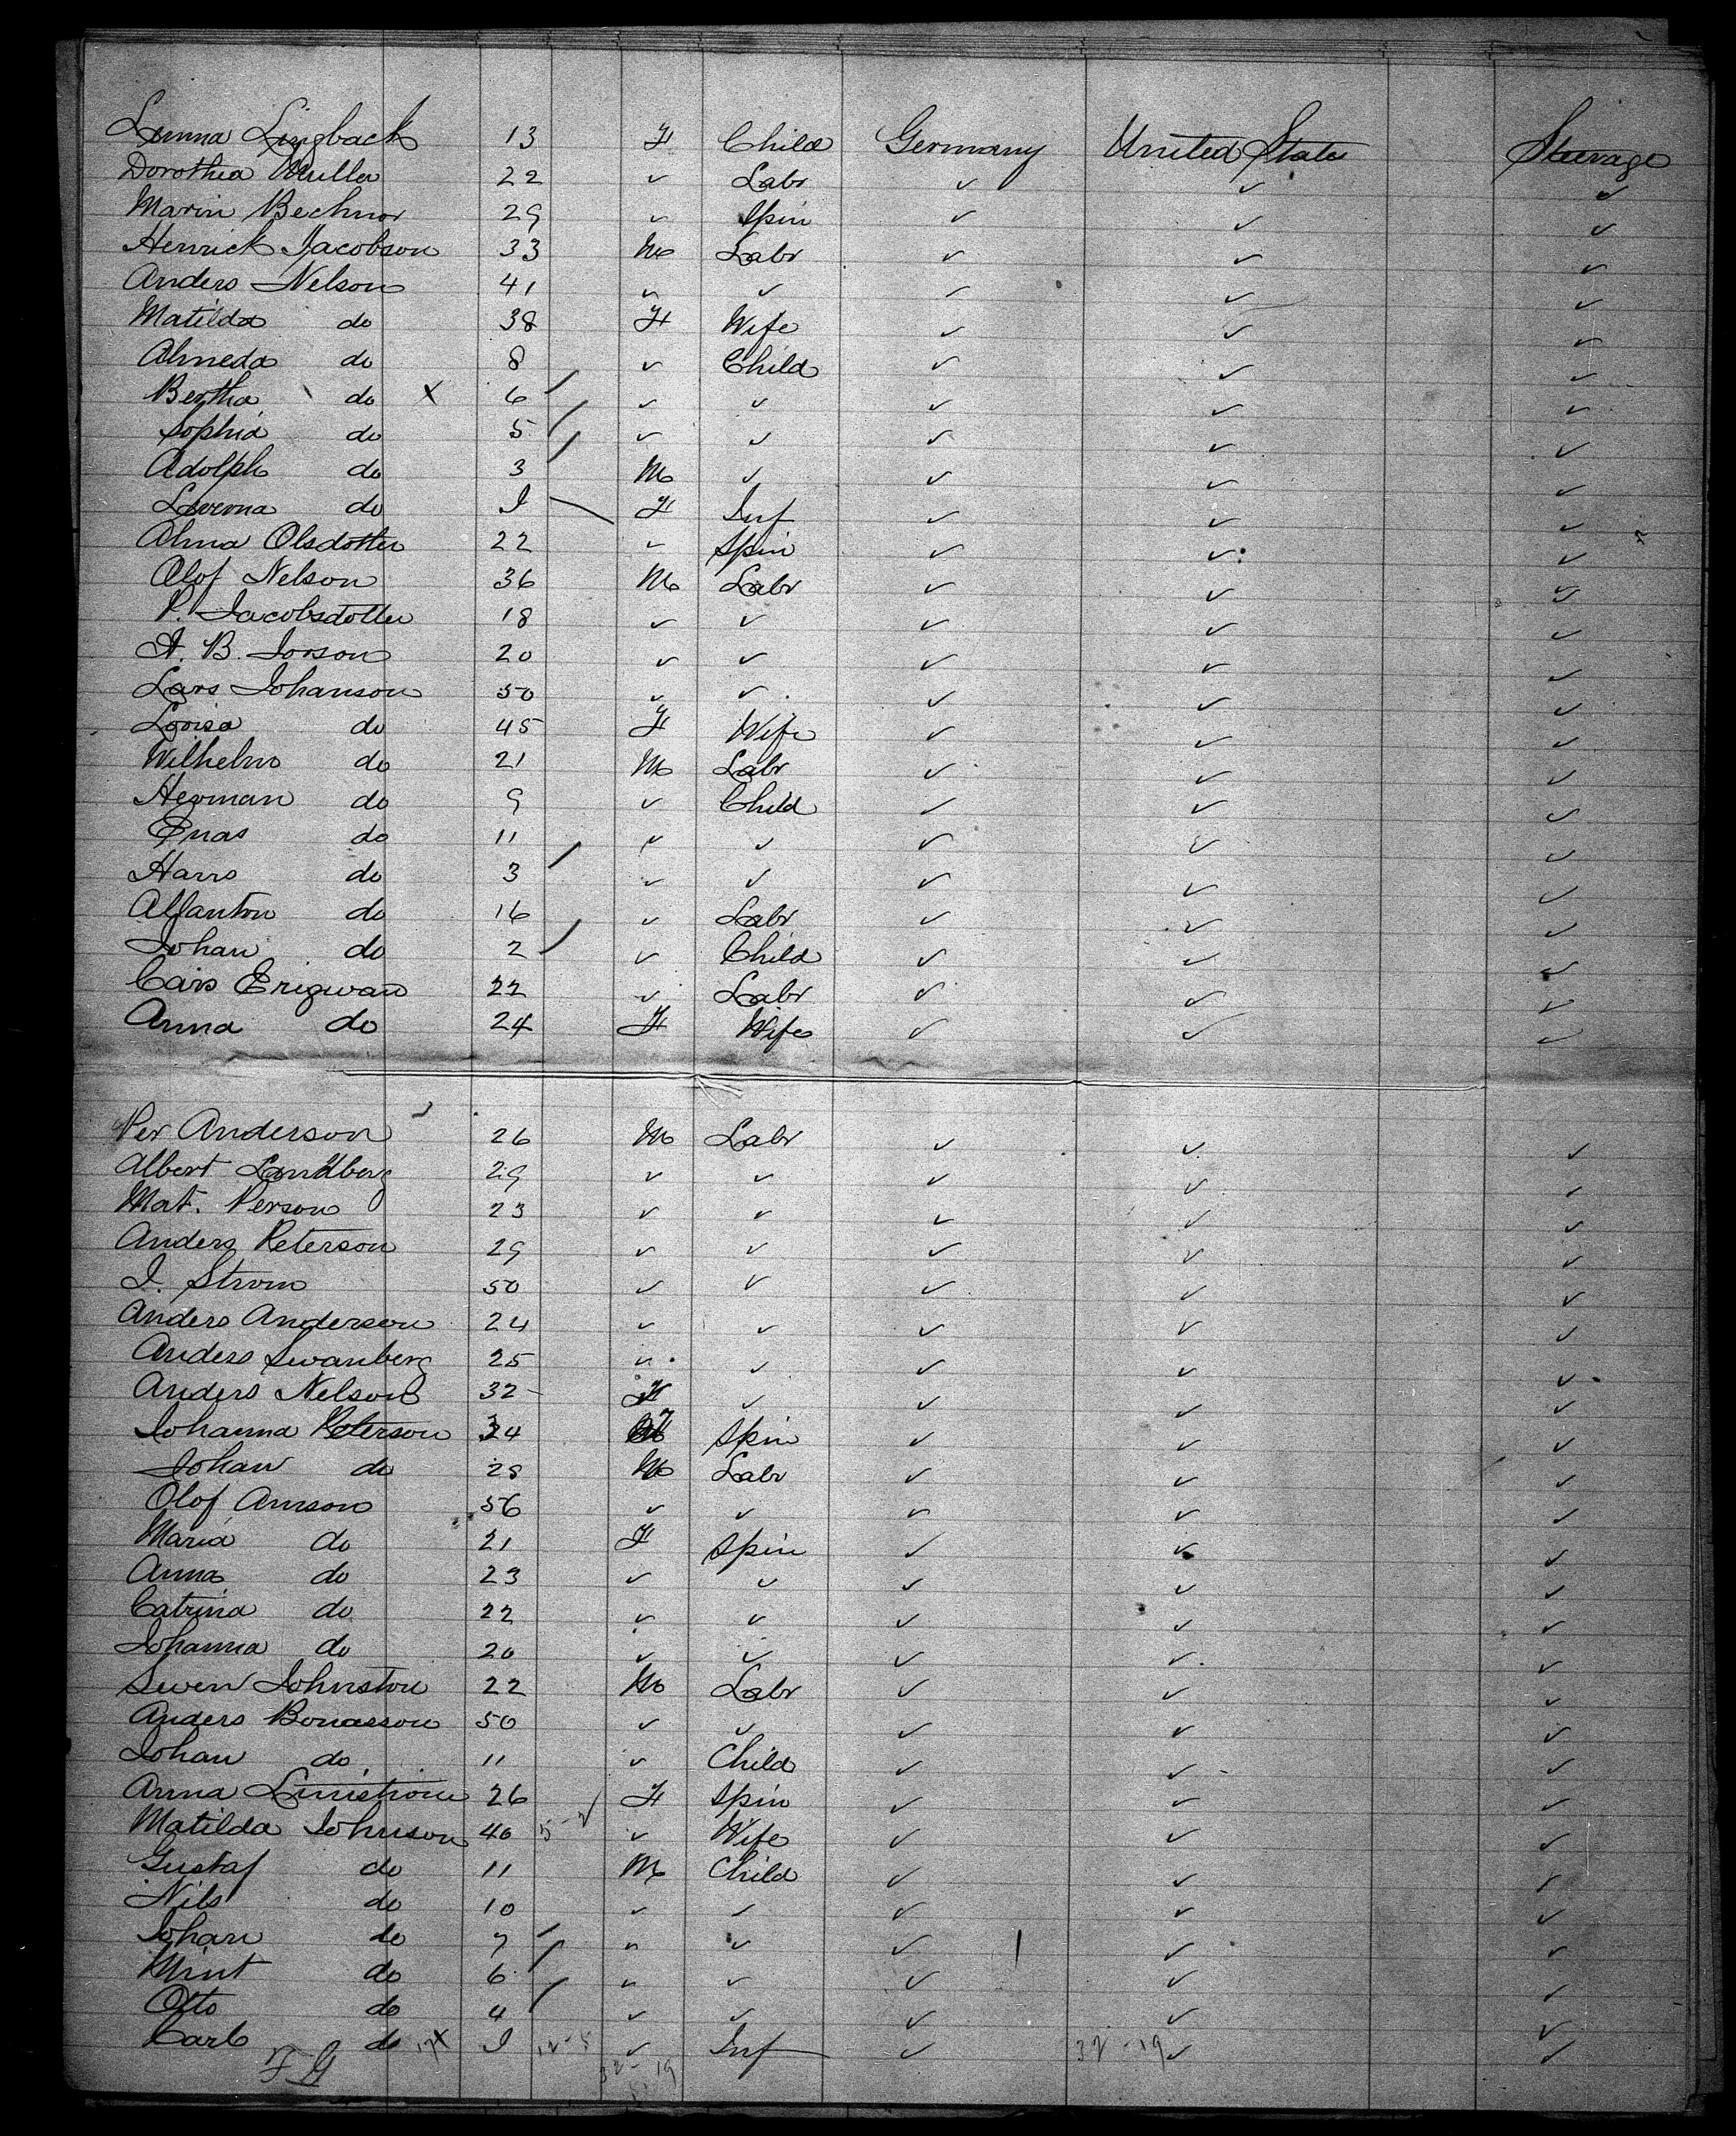 Lumna Lingback 13 F Child Germany United State Steerage
Dorothea Muller 22 ✓ Labr ✓ ✓ ✓
Marin Bechnor 29 ✓ Spin ✓ ✓ ✓
Henrick Jacobson 33 M Labr ✓ ✓ ✓
Anders Nelson 41 ✓ ✓ ✓ ✓ ✓
Matilda do 38 F Wife ✓ ✓ ✓
Almeda do 8 ✓ Child ✓ ✓ ✓
Bertha do X 6 / ✓ ✓ ✓ ✓ ✓
Sophia do 5 / ✓ ✓ ✓ ✓ ✓
Adolph do 3 / M ✓ ✓ ✓ ✓
Laverna do I F Inf ✓ ✓ ✓
Alma Olsdotter 22 ✓ Spin ✓ ✓ ✓
Olof Nelson 36 M Labr ✓ ✓ ✓
P. Jacobsdotter 18 ✓ ✓ ✓ ✓ ✓
A. B. Jorson 20 ✓ ✓ ✓ ✓ ✓
Lars Johanson 50 ✓ ✓ ✓ ✓ ✓
Lovisa do 45 F Wife ✓ ✓ ✓
Wilhelm do 21 M Labr ✓ ✓ ✓
Herman do 9 ✓ Child ✓ ✓ ✓
do 11 ✓ ✓ ✓ ✓ ✓
Hans do 3 / ✓ ✓ ✓ ✓ ✓
Alfanton do 16 ✓ Labr ✓ ✓ ✓
Johan do 2 / ✓ Child ✓ ✓ ✓
22 ✓ Labr ✓ ✓ ✓
Anna do 24 F Wife ✓ ✓ ✓
Per Anderson 26 M Labr ✓ ✓ ✓
Albert Landberg 29 ✓ ✓ ✓ ✓ ✓
Mat. Person 23 ✓ ✓ ✓ ✓ ✓
Anders Peterson 29 ✓ ✓ ✓ ✓ ✓
J. Strom 50 ✓ ✓ ✓ ✓ ✓
Anders Anderson 24 ✓ ✓ ✓ ✓ ✓
Anders Swanberg 25 ✓ ✓ ✓ ✓ ✓
Anders Nelson 32 ✓ ✓ ✓ ✓
Johanna Peterson 34 F Spin ✓ ✓ ✓
Johan do 28 M Labr ✓ ✓ ✓
Olof Anrson 56 ✓ ✓ ✓ ✓ ✓
Maria do 21 F Spin ✓ ✓ ✓
Anna do 23 ✓ ✓ ✓ ✓ ✓
Catrina do 22 ✓ ✓ ✓ ✓ ✓
Johanna do 20 ✓ ✓ ✓ ✓ ✓
Swen Johnston 22 M Labr ✓ ✓ ✓
Anders Bonasson 50 ✓ ✓ ✓ ✓ ✓
Johan do 11 ✓ Child ✓ ✓ ✓
Anna Linistrom 26 F Spin ✓ ✓ ✓
Matilda Johnson 40 5-2 ✓ Wife ✓ ✓ ✓
Gustaf do 11 M Child ✓ ✓ ✓
Nils do 10 ✓ ✓ ✓ ✓ ✓
Johan do 7 / ✓ ✓ ✓ ✓ ✓
Mint do 6 / ✓ ✓ ✓ ✓ ✓
Otto do 4 / ✓ ✓ ✓ ✓ ✓
Carl do I 12-5 ✓ Inf ✓ 32-19 ✓ ✓
32-19